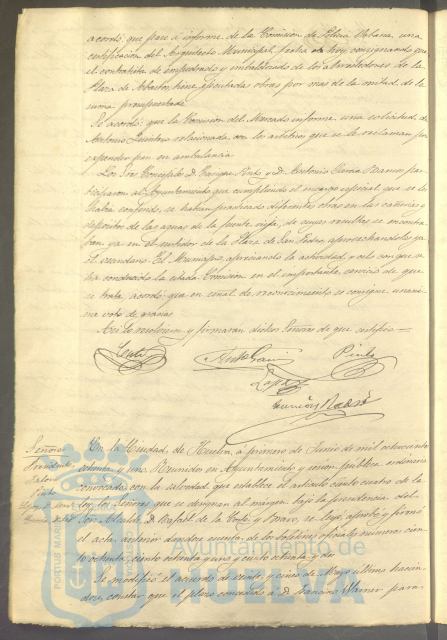 acordó, que pase á informe de la Comision de Policía Urbana, una
certificacion del Arquitecto Municipal fecha de hoy, consignando que
el contratista de empedrado y embaldosado de los alrededores de la
Plaza de Abastos, tiene ejecutadas obras por mas de la mitad de la
suma presupuestada.
Se acordó: que la Comision del Mercado informe una solicitud de
Antonio Quintero relacionada con los arbitrios que se le reclaman por
expender pan en ambulancia.
Los Sres Concejales D. Gaspar y D. Antonio Garcia Ramos par-
ticiparon al Ayuntamiento que cumpliendo el encargo especial que se les
habia conferido, se habian practicado diferentes obras en las cañerias y
depositos de las aguas de la fuente vieja, de cuyas resultas se encontra-
ban ya en el surtidor de la Plaza de San Pedro, aprovechandolas ya
el vecindario. El Municipio, apreciando la actividad y celo con que se
ha conducido la citada Comision en el importante servicio de que
se trata, acordó: que en señal de reconocimiento se consigne unani-
me voto de gracias.
Asi lo resolvieron y firmaran dichos Señores de que certifico =
Pinto
Lopez
Señores
Presidente
Pinto
En la Ciudad de Huelva, á primero de Junio de mil ochocientos
ochenta y uno. Reunido en Ayuntamiento y sesion pública ordinaria
convocada con la salvedad que establece el artículo ciento cuatro de la
ley, los Señores que se designan al márgen, bajo la presidencia del
Sor Alcalde D. Rafael de la Corte y Bravo, se leyó, aprobó y firmó
el acta anterior dandose cuenta de los boletines oficiales números cien-
to ochenta, ciento ochenta y uno y cuatro.
Se modificó el acuerdo de veinte y cinco de Mayo último hacien-
dose constar que el plazo concedido á D. para
Ayuntamiento de
HUELVA
PORTUS MARIS